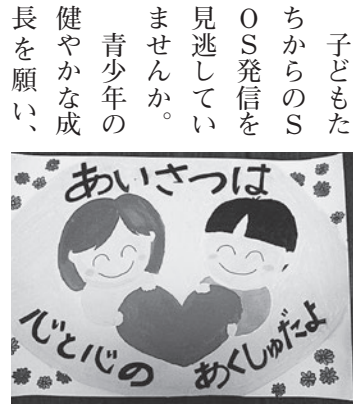 子どもた
ちからのS
OS発信を
見逃してい
ませんか。
青少年の
健やかな成
長を願い、
あいさつは
心と心の
あくしゅだよ